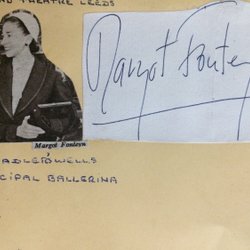 THEATRE LEEDS
Margot Fonteyn
Margot Fonte
ADLER'S WELLS
CIPAL BALLERINA